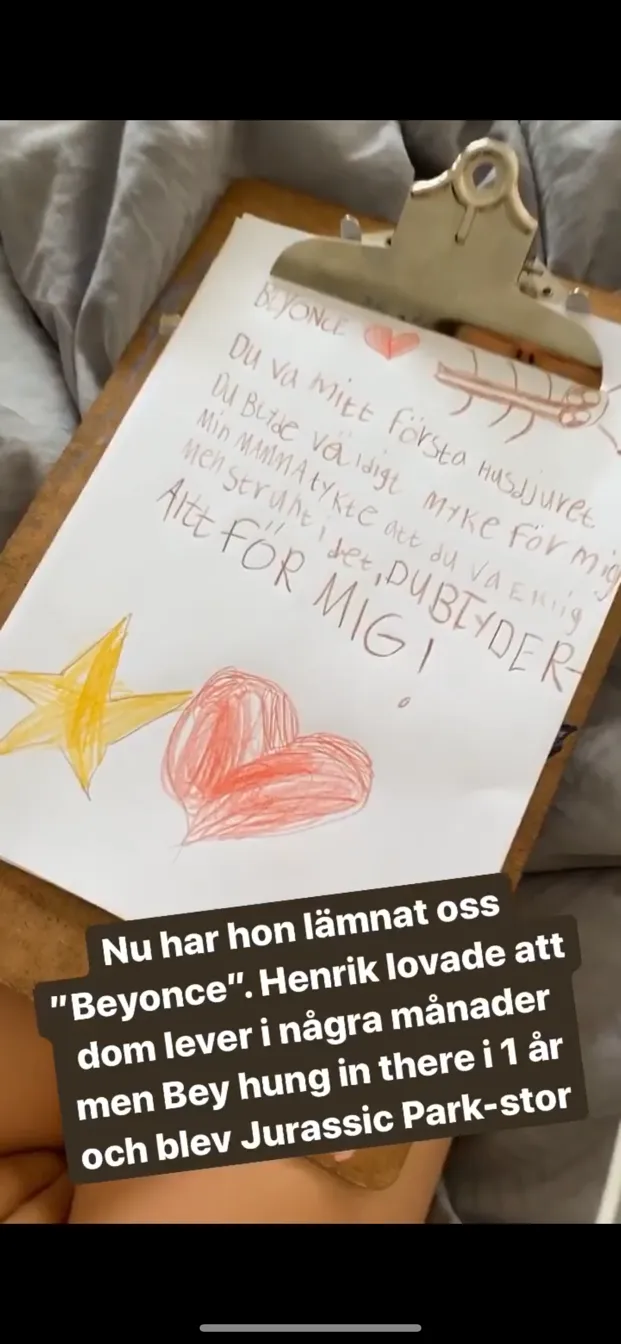 BEYONCE
Du va mitt första Husdjuret
Du Bltde väldigt myke för mig
Min MAMMA tykte att du va Eklig
Men strunt i det, DU BLYDER-
Allt FÖR MIG!
Nu har hon lämnat oss
"Beyonce". Henrik lovade att
dom lever i några månader
men Bey hung in there i 1 år
och blev Jurassic Park-stor